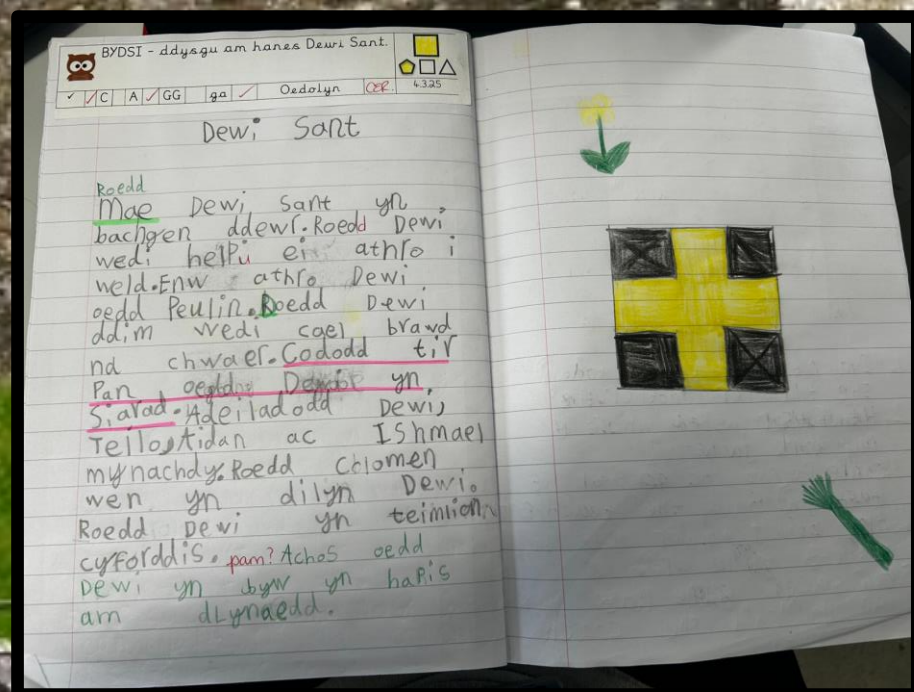 BYDSI - ddysgu am hanes Dewi Sant.
✓ / C A / GG ga / Oedolyn CER. 4.3.25
Dewi Sant
Roedd
Mae Dewi Sant yn
bachgen ddewr. Roedd Dewi
wedi helpu ei athro i
weld. Enw athro Dewi
oedd Peulin. Roedd Dewi
ddim wedi cael brawd
na chwaer. Cododd tir
Pan oedd Dewi yn
Siarad. Adeiladodd Dewi,
Teilo, Aidan ac Ishmael
mynachdy. Roedd Colomen
wen yn dilyn Dewi.
Roedd Dewi yn teimlion
cyfforddis. pam? Achos oedd
Dewi yn byw yn hapis
am dLynaedd.